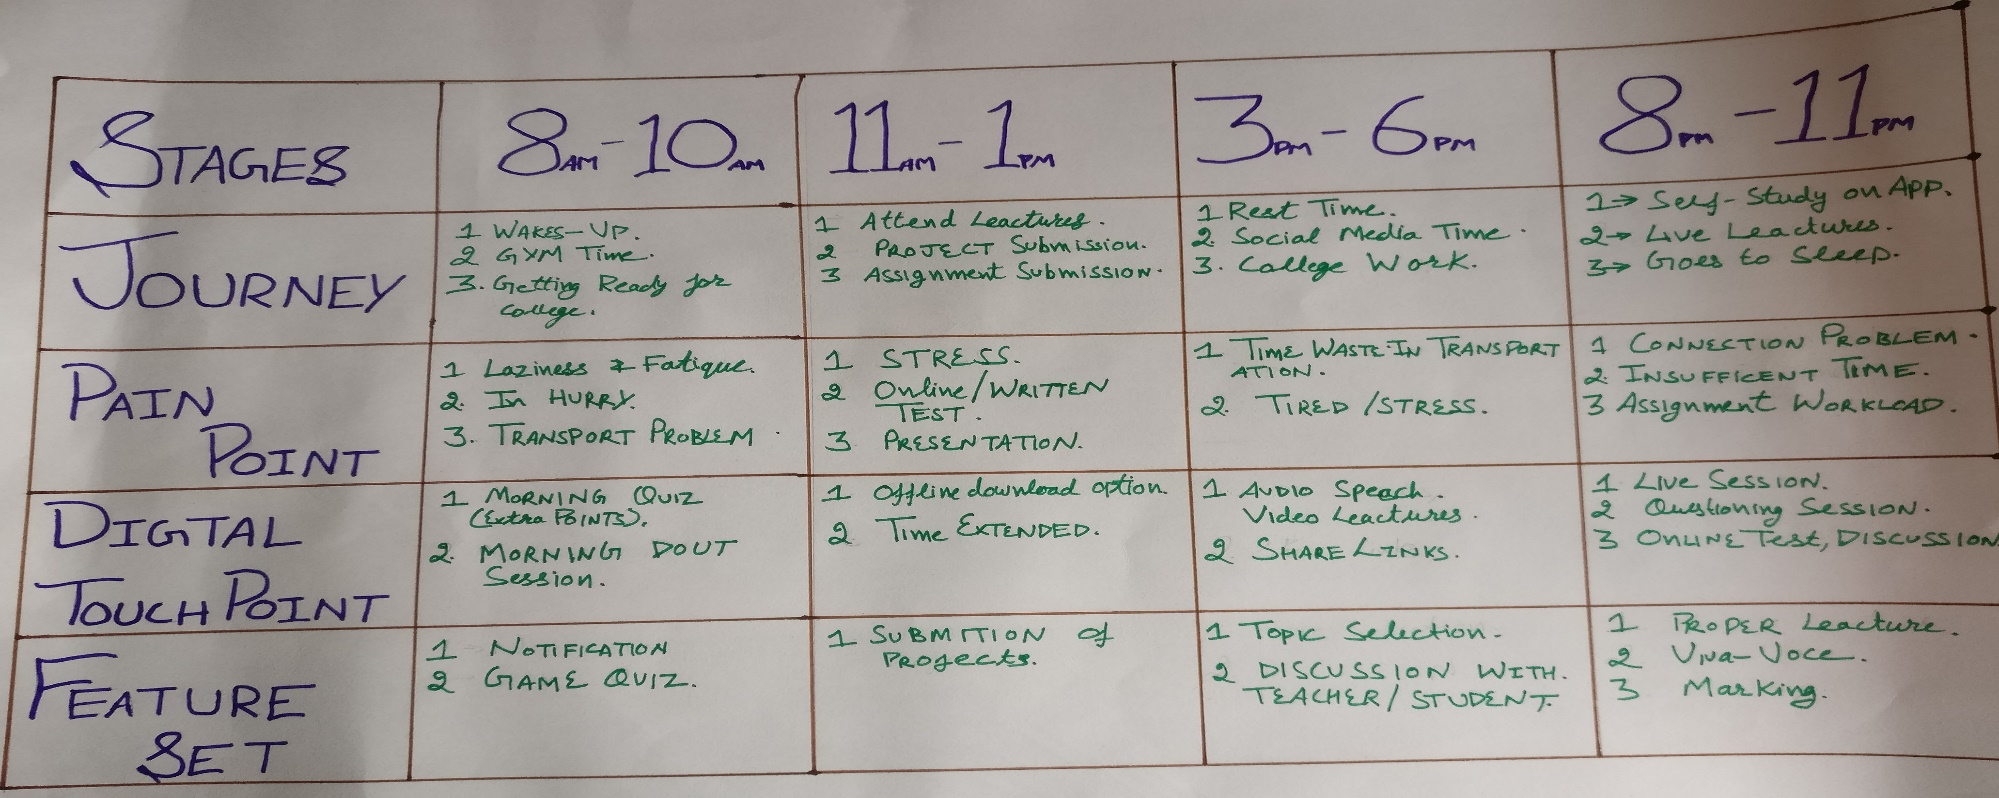 STAGES
8AM-10AM
11AM-1PM
3PM-6PM
8PM-11PM
JOURNEY
1 WAKES-UP.
2 GYM Time.
3. Getting Ready for
College.
1 Attend Leactures.
2 PROJECT Submission.
3 Assignment Submission.
1 Rest Time.
2. Social Media Time.
3. College Work.
1→ Self-Study on App.
2→ Live Leactures.
3→ Goes to Sleep.
PAIN
POINT
1 Laziness & Fatigue.
2. In HURRY.
3. TRANSPORT PROBLEM
1 STRESS.
2 Online/WRITTEN
TEST.
3 PRESENTATION.
1 TIME WASTE IN TRANSPORT
ATION.
2. TIRED/STRESS.
1 CONNECTION PROBLEM.
2. INSUFFICENT TIME.
3 Assignment WORKLOAD.
DIGTAL
TOUCH POINT
1 MORNING QUIZ
(Extra POINTS).
2. MORNING DOUT
Session.
1 Offline download option.
2 Time EXTENDED.
1 AUDIO Speach.
Video Leactures.
2 SHARE LINKS.
1 LIVE SESSION.
2 Questioning SESSION.
3 ONLINE Test, DISCUSSION
FEATURE
SET
1 NOTIFICATION
2 GAME QUIZ.
1 SUBMITION of
PROjects.
1 Topic Selection.
2 DISCUSSION WITH.
TEACHER/STUDENT.
1 PROPER Leacture.
2 Viva-Voce.
3 Marking.